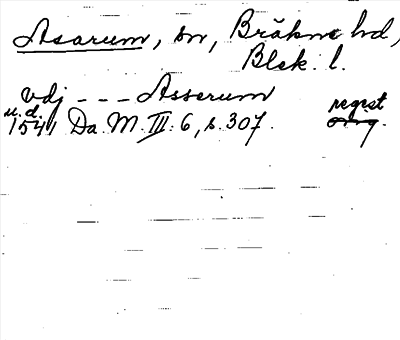 Asarum, sn, Bräkne hd,
Blek. l.
vdj --- Asserum
u.d. regist
1541 Da. M. III: 6, s. 307. orig.